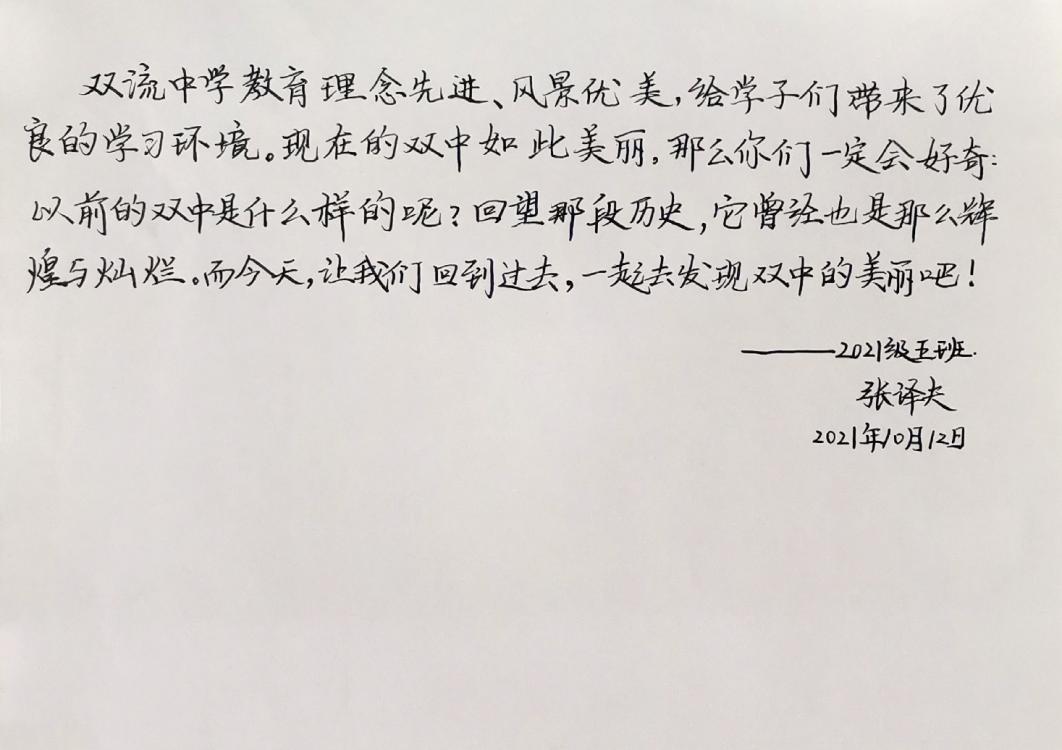 双流中学教育理念先进、风景优美,给学子们带来了优
良的学习环境。现在的双中如此美丽,那么你们一定会好奇:
以前的双中是什么样的呢?回望那段历史,它曾经也是那么辉
煌与灿烂。而今天,让我们回到过去,一起去发现双中的美丽吧!
——2021级五班.
张译夫
2021年10月12日